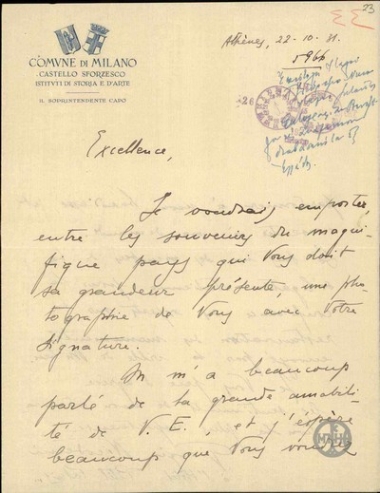 23
COMVNE DI MILANO
CASTELLO SFORZESCO
ISTITVTI DI STORIA E D'ARTE
IL SOPRINTENDENTE CAPO
Athènes, 22-10-31
5966
Excellence,
Je voudrais emporter,
entre les souvenirs du magni-
fique pays qui Vous doit
sa grandeur présente, une pho-
tographie de Vous avec Votre
signature.
On m'a beaucoup
parlé de la grande amabili-
té de V. E., et j'espère
beaucoup que Vous